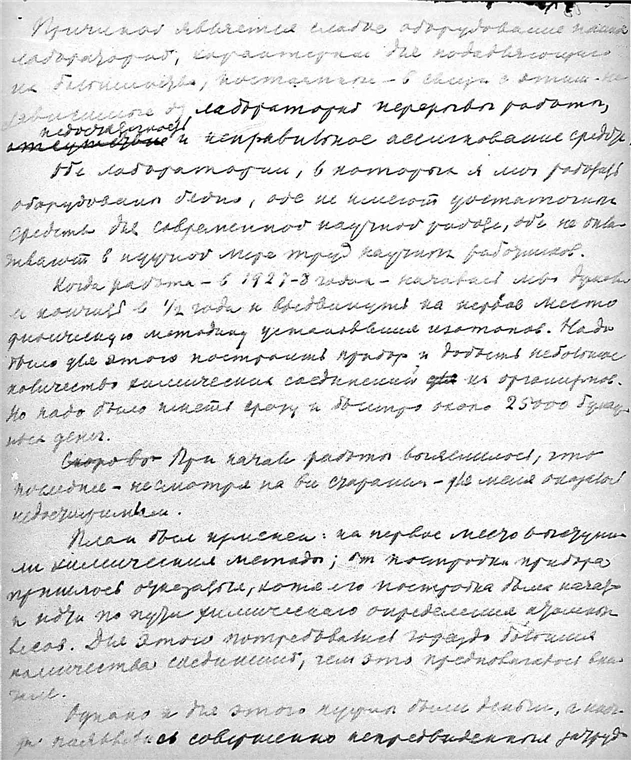 Причиной является слабое оборудование наших
лабораторий, характерное для подавляющего
их большинства, постоянные – в связи с этим – не
зависимые от лаборатории перерывы работы,
недостаточное и неправильное ассигнование средств.
Обе лаборатории, в которых я мог работать
оборудованы бедно, обе не имеют достаточных
средств для современной научной работы, обе не опла-
чивают в нужной мере труд научных работников.
Когда работа – в 1927-8 годах – началась, я думал
ее кончить в 1½ года и выдвинуть на первое место
физическую методику установления изотопов. Надо
было для этого построить прибор и добыть небольшое
количество химических соединений из организмов.
Но надо было иметь сразу и быстро около 25000 бумаж-
ных денег.
При начале работы выяснилось, что
последнее – несмотря на все старания – для меня оказалось
недостижимым.
План был изменен: на первое место выступи-
ли химические методы; от постройки прибора
пришлось отказаться, хотя его постройка была начата
и идти по пути химического определения атомных
весов. Для этого потребовались гораздо большие
количества соединений, чем это предполагалось вна-
чале.
Однако и для этого нужны были деньги, а иног-
да появлялись совершенно непредвиденные затруд-